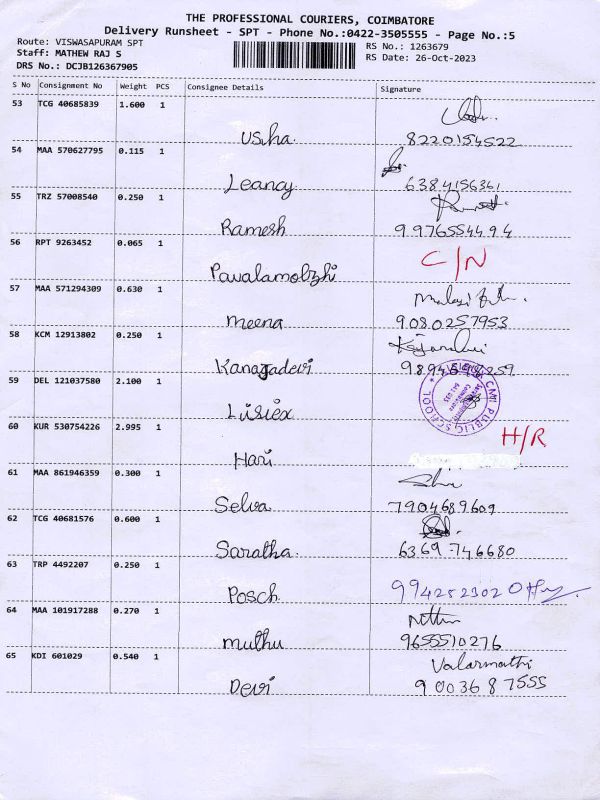 THE PROFESSIONAL COURIERS, COIMBATORE
Delivery Runsheet - SPT - Phone No.:0422-3505555 - Page No.:5
Route: VISWASAPURAM SPT
Staff: MATHEW RAJ S
DRS No.: DCJB126367905
RS No.: 1263679
RS Date: 26-Oct-2023
S No Consignment No Weight PCS Consignee Details Signature
53 TCG 40685839 1.600 1
Usha 8220154522
54 MAA 570627795 0.115 1
Leancy 6384156361
55 TRZ 57008540 0.250 1
Ramesh 9976554494
56 RPT 9263452 0.065 1
Pavalamolzhi C/N
57 MAA 571294309 0.630 1
meena 9080257953
58 KCM 12913802 0.250 1
Kanagadevi
59 DEL 121037580 2.100 1
PUBLIC SCHOOL
60 KUR 530754226 2.995 1
Hari H/R
61 MAA 861946359 0.300 1
Selva 7904689609
62 TCG 40681576 0.600 1
Saratha 6369746680
63 TRP 4492207 0.250 1
Posch 9942523020
64 MAA 101917288 0.270 1
muthu 9655510276
65 KDI 601029 0.540 1
Valarmathi
Devi 9003687555